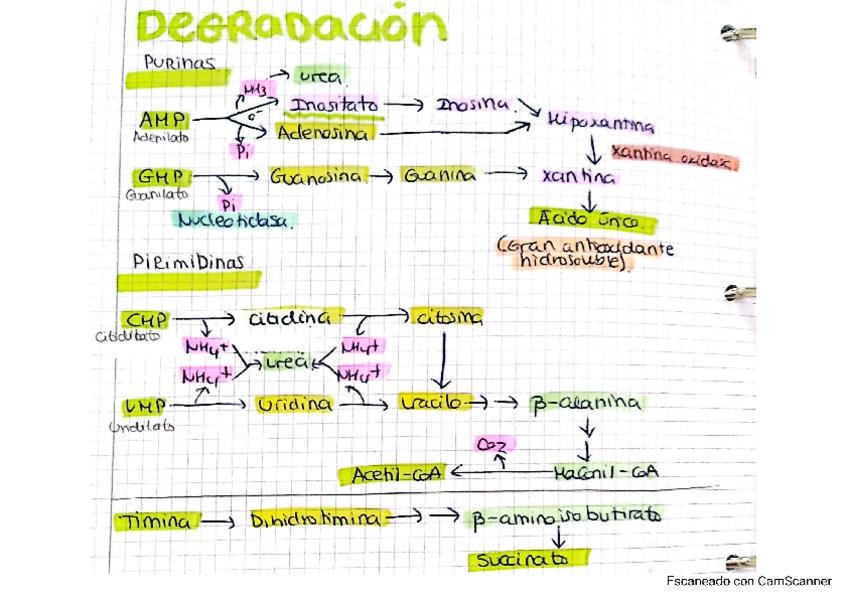 DEGRADACIÓN
PURINAS
NH3 → urea
AMP Inositato → Inosina
Adenilato o- Hipoxantina
Adenosina
Pi
xantina oxidasa
GMP → Guanosina → Guanina → xantina
Guanilato
Pi
Nucleotidasa. Ácido Único
(Gran antioxidante
hidrosoluble).
PIRIMIDINAS
CMP → citidina → citosina
NH4+ NH4+
urea
NH4+ NH4+
UMP → Uridina → Uracilo → → β-alanina
CO2
Acetil-CoA ← Malonil-CoA
Timina → Dihidrotimina → → β-aminoisobutirato
Succinato
Escaneado con CamScanner